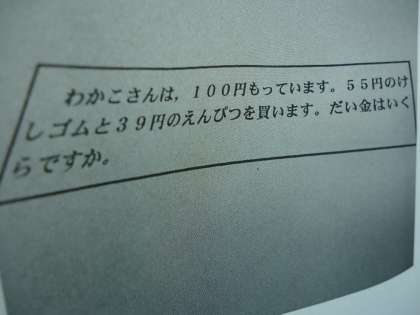 わかこさんは，１００円もっています。５５円のけ
しゴムと３９円のえんぴつを買います。だい金はいく
らですか。